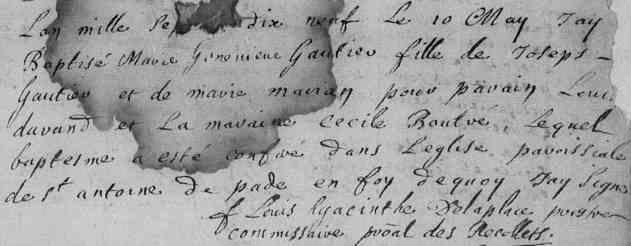 Lan mille Sep dix neuf Le 10 May Jay
Baptisé Marie Genevieve Gautier fille de Joseps-
Gautier et de marie pour parain Loui
durand et La maraine Cecile Boutré, Lequel
baptesme a esté conferé dans Leglise paroissiale
de St antoine de pade en foy dequoy Jay Signé
f Louis hyacinthe Delaplace
commissaire proâl des Recollets.